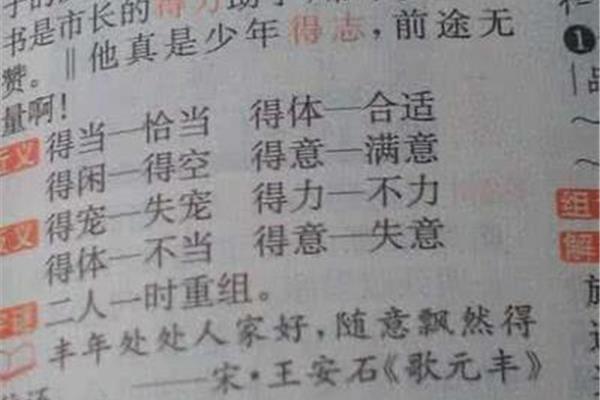 书是市长的得力助手
赞。‖他真是少年得志,前途无
量啊!
近义 得当—恰当 得体—合适
得闲—得空 得意—满意
反义 得宠—失宠 得力—不力
得体—不当 得意—失意
字谜 二人一时重组。
丰年处处人家好,随意飘然得
——宋·王安石《歌元丰》
❶
组
解